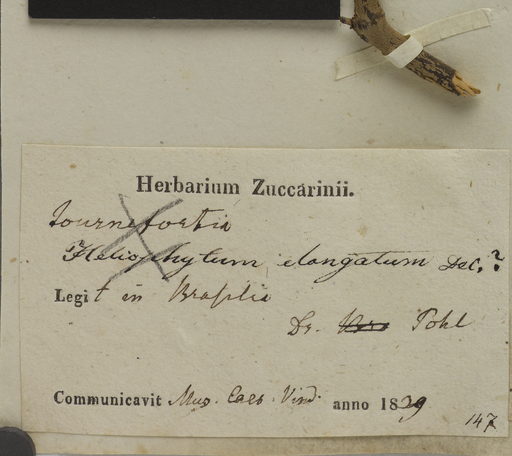 Herbarium Zuccarinii.
Tournefortia
Heliophytum elongatum Dec.?
Legit in Brasilia
Dr. Pohl
Communicavit Mus. Caes. Vind. anno 1839
147